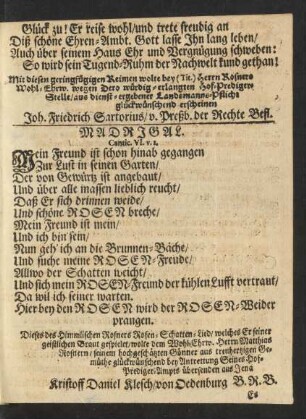 Glück zu! Er reise wohl/ und trete freudig an
Diß schöne Ehren-Ambt. Gott lasse Ihn lang leben/
Auch über seinem Haus Ehr und Vergnügung schweben:
So wird sein Tugend-Ruhm der Nachwelt kund gethan!
Mit diesen geringfügigen Reimen wolte bey (Tit.) Herrn Rosners
Wohl-Ehrw. wegen Dero würdig-erlangten Hof-Prediger-
Stelle/ aus dienst-ergebener Landsmanns-Pflicht
glückwünschend erscheinen
Joh. Friedrich Sartorius/ v. Preßb. der Rechte Befl.
MADRIGAL.
Cantic. VI. v. 2.
Mein Freund ist schon hinab gegangen
Zur Lust in seinen Garten/
Der von Gewürtz ist angebaut/
Und über alle massen lieblich reucht/
Daß Er sich drinnen weide/
Und schöne ROSEN breche/
Mein Freund ist mein/
Und ich bin sein/
Nun geh' ich an die Brunnen-Bäche/
Und suche meine ROSEN-Freude/
Allwo der Schatten weicht/
Und sich mein ROSEN-Freund der kühlen Lufft vertraut/
Da wil ich seiner warten.
Hier bey den ROSEN wird der ROSEN-Weider
prangen.
Dieses des Himmlischen Rosners Rosen-Schatten-Lied/ welches Er seiner
geistlichen Braut gespielet/ wolte dem Wohl-Ehrw. Herrn Matthias
Rosnern/ seinem hochgeschätzten Gönner aus treuhertzigem Ge-
müthe glückwünschend bey Antrettung Seines Hof-
Prediger-Ampts übersenden aus Jena
Kristoff Daniel Klesch/ von Oedenburg B. R. B.
Es